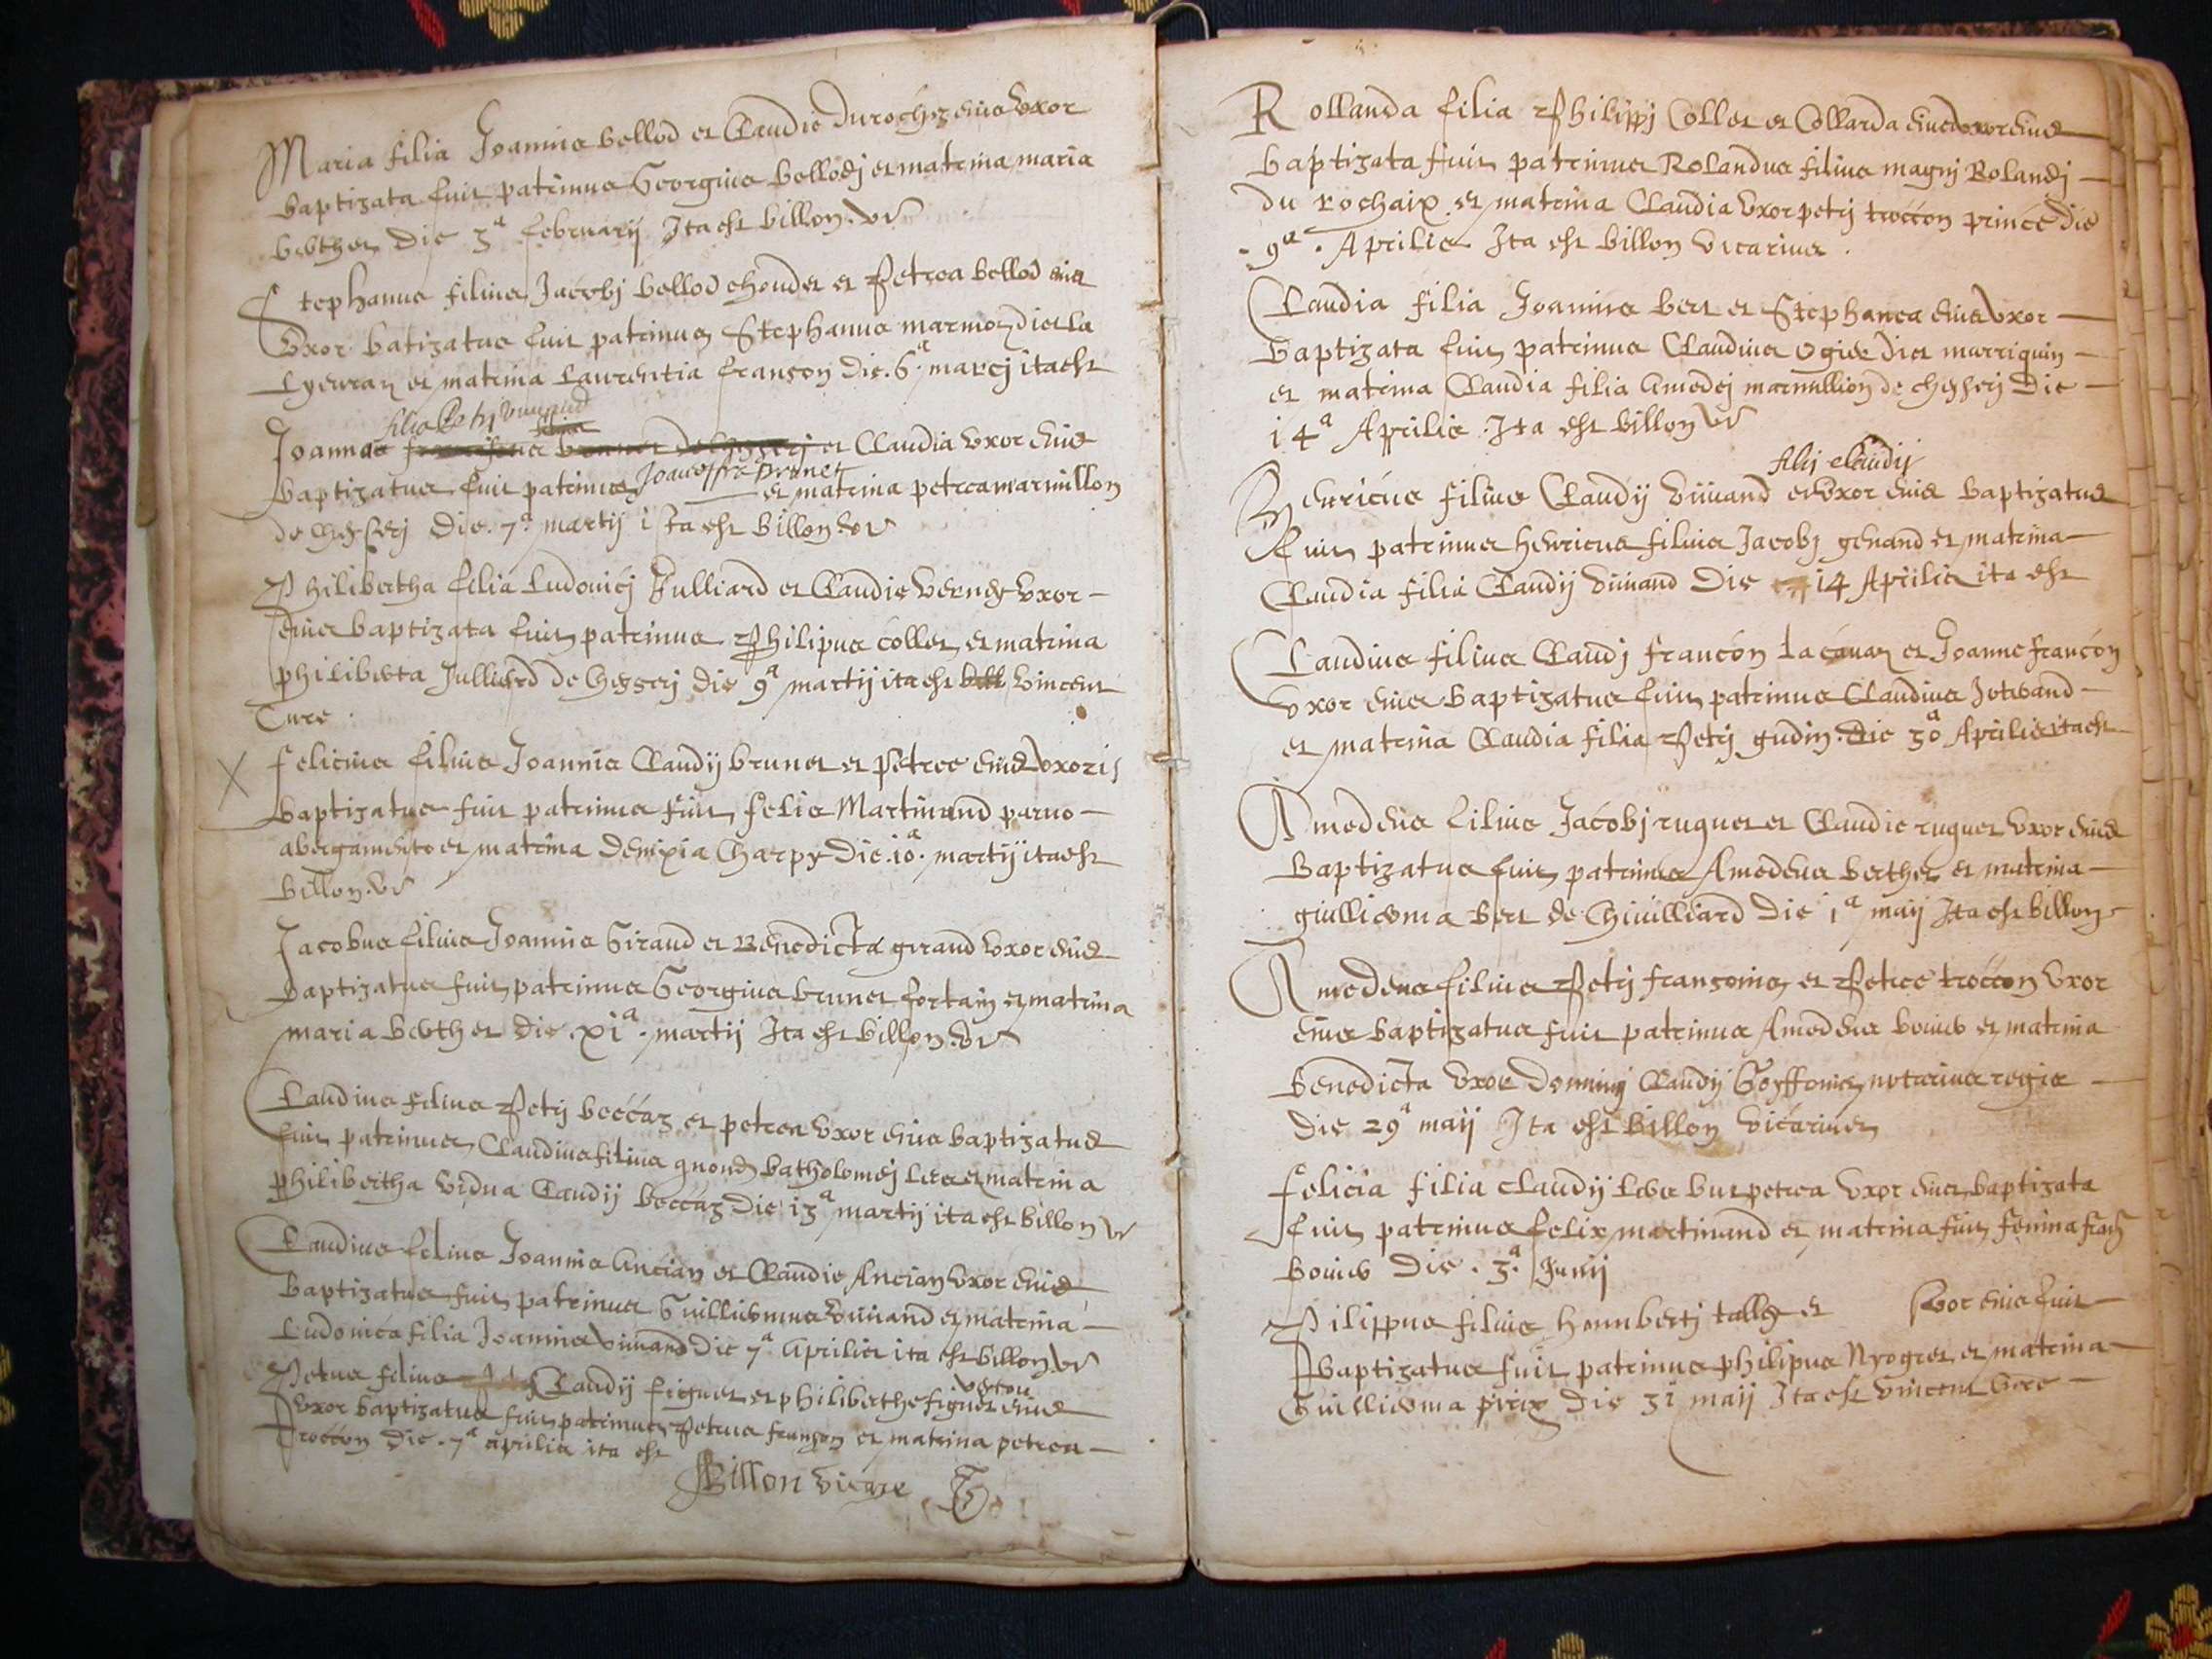 Maria filia Joannis bellod et Claudie Durochez eius uxor
baptizata fuit patrinus Georgius bellodj et matrina maria
berthet die 3a februarij Ita est billon vr
Stephanus filius Jacobj bellod et Petrea bellod eius
uxor batizatus fuit patrinus Stephanus marmoz
et matrina Laurentia françon die 6a marcj ita est
Joannes et Claudia uxor eius
baptizatus fuit patrinus brunet et matrina petrea marmillon
de chesserj die 7a martij ita est billon vr
Philibertha filia Ludovicj Julliard et Claudie uxor
eius baptizata fuit patrinus Philipus collet et matrina
philiberta Julliard de chesserj die 9a martij ita est vincent
Cure
X felicius filius Joannis Claudij brunet et petree eius uxoris
baptizatus fuit patrinus fuit felis Martinand parvo
abergamento et matrina denixia Charpy die 10a martij ita est
billon vr
Jacobus filius Joannis Giraud et Benedicta giraud uxor eius
baptizatus fuit patrinus Georgius brunet et matrina
maria berthet die xia martij Ita est billon vr
Claudius filius Petrj beccaz et petrea uxor eius baptizatus
fuit patrinus Claudius filius quond batholomej et matrina
philibertha vidua Claudij beccaz die 13a martij ita est billon vr
Claudius filius Joannis Ancian et Claudie Ancian uxor eius
baptizatus fuit patrinus Guilliermus vuinand et matrina
Ludovica filia Joannis vuinand die 7a Aprilis ita est billon vr
Petrus filius Claudij figuet et philiberthe figuet eius
uxor baptizatus fuit patrinus Petrus françon et matrina petrea
troccon die 7a aprilis ita est
Billon vicare
Rollanda filia Philippj Collet et Collarda eius
baptizata fuit patrinus Rolandus filius magnj Rolandj
du rochaix et matrina Claudia uxor petrj troccon prince die
9a Aprilis Ita est billon vicarius
Claudia filia Joannis bert et Stephanea eius uxor
baptizata fuit patrinus Claudius
et matrina Claudia filia Amedej marmillion de chesserj die
14a Aprilis Ita est billon vr
filij claudij
Henricus filius Claudij vuinand et uxor eius baptizatus
fuit patrinus henricus filius Jacobj genand et matrina
Claudia filia Claudij vuinand die 14 Aprilis ita est
Claudius filius Claudj françon et Joanne françon
uxor eius baptizatus fuit patrinus Claudius
et matrina Claudia filia Petrj gudin die 30a Aprilis ita est
Amedeus filius Jacobj ruguet et Claudie ruguet uxor eius
baptizatus fuit patrinus Amedeus berthet et matrina
guillierma bert de Chivilliard die 1a maij Ita est billon
Amedeus filius Petrj françonis et Petree troccon uxor
eius baptizatus fuit patrinus Amedeus bouier et matrina
benedicta uxor dominj Claudij Goyffonis notarius regis
die 29a maij Ita est billon vicarius
felicia filia claudij petrea uxor eius baptizata
fuit patrinus felix martinand et matrina fuit
bouier die 3a Junij
Pilippus filius humbertj et uxor eius fuit
baptizatus fuit patrinus philipus et matrina
Guillierma die 31 maij Ita est vincent Cure